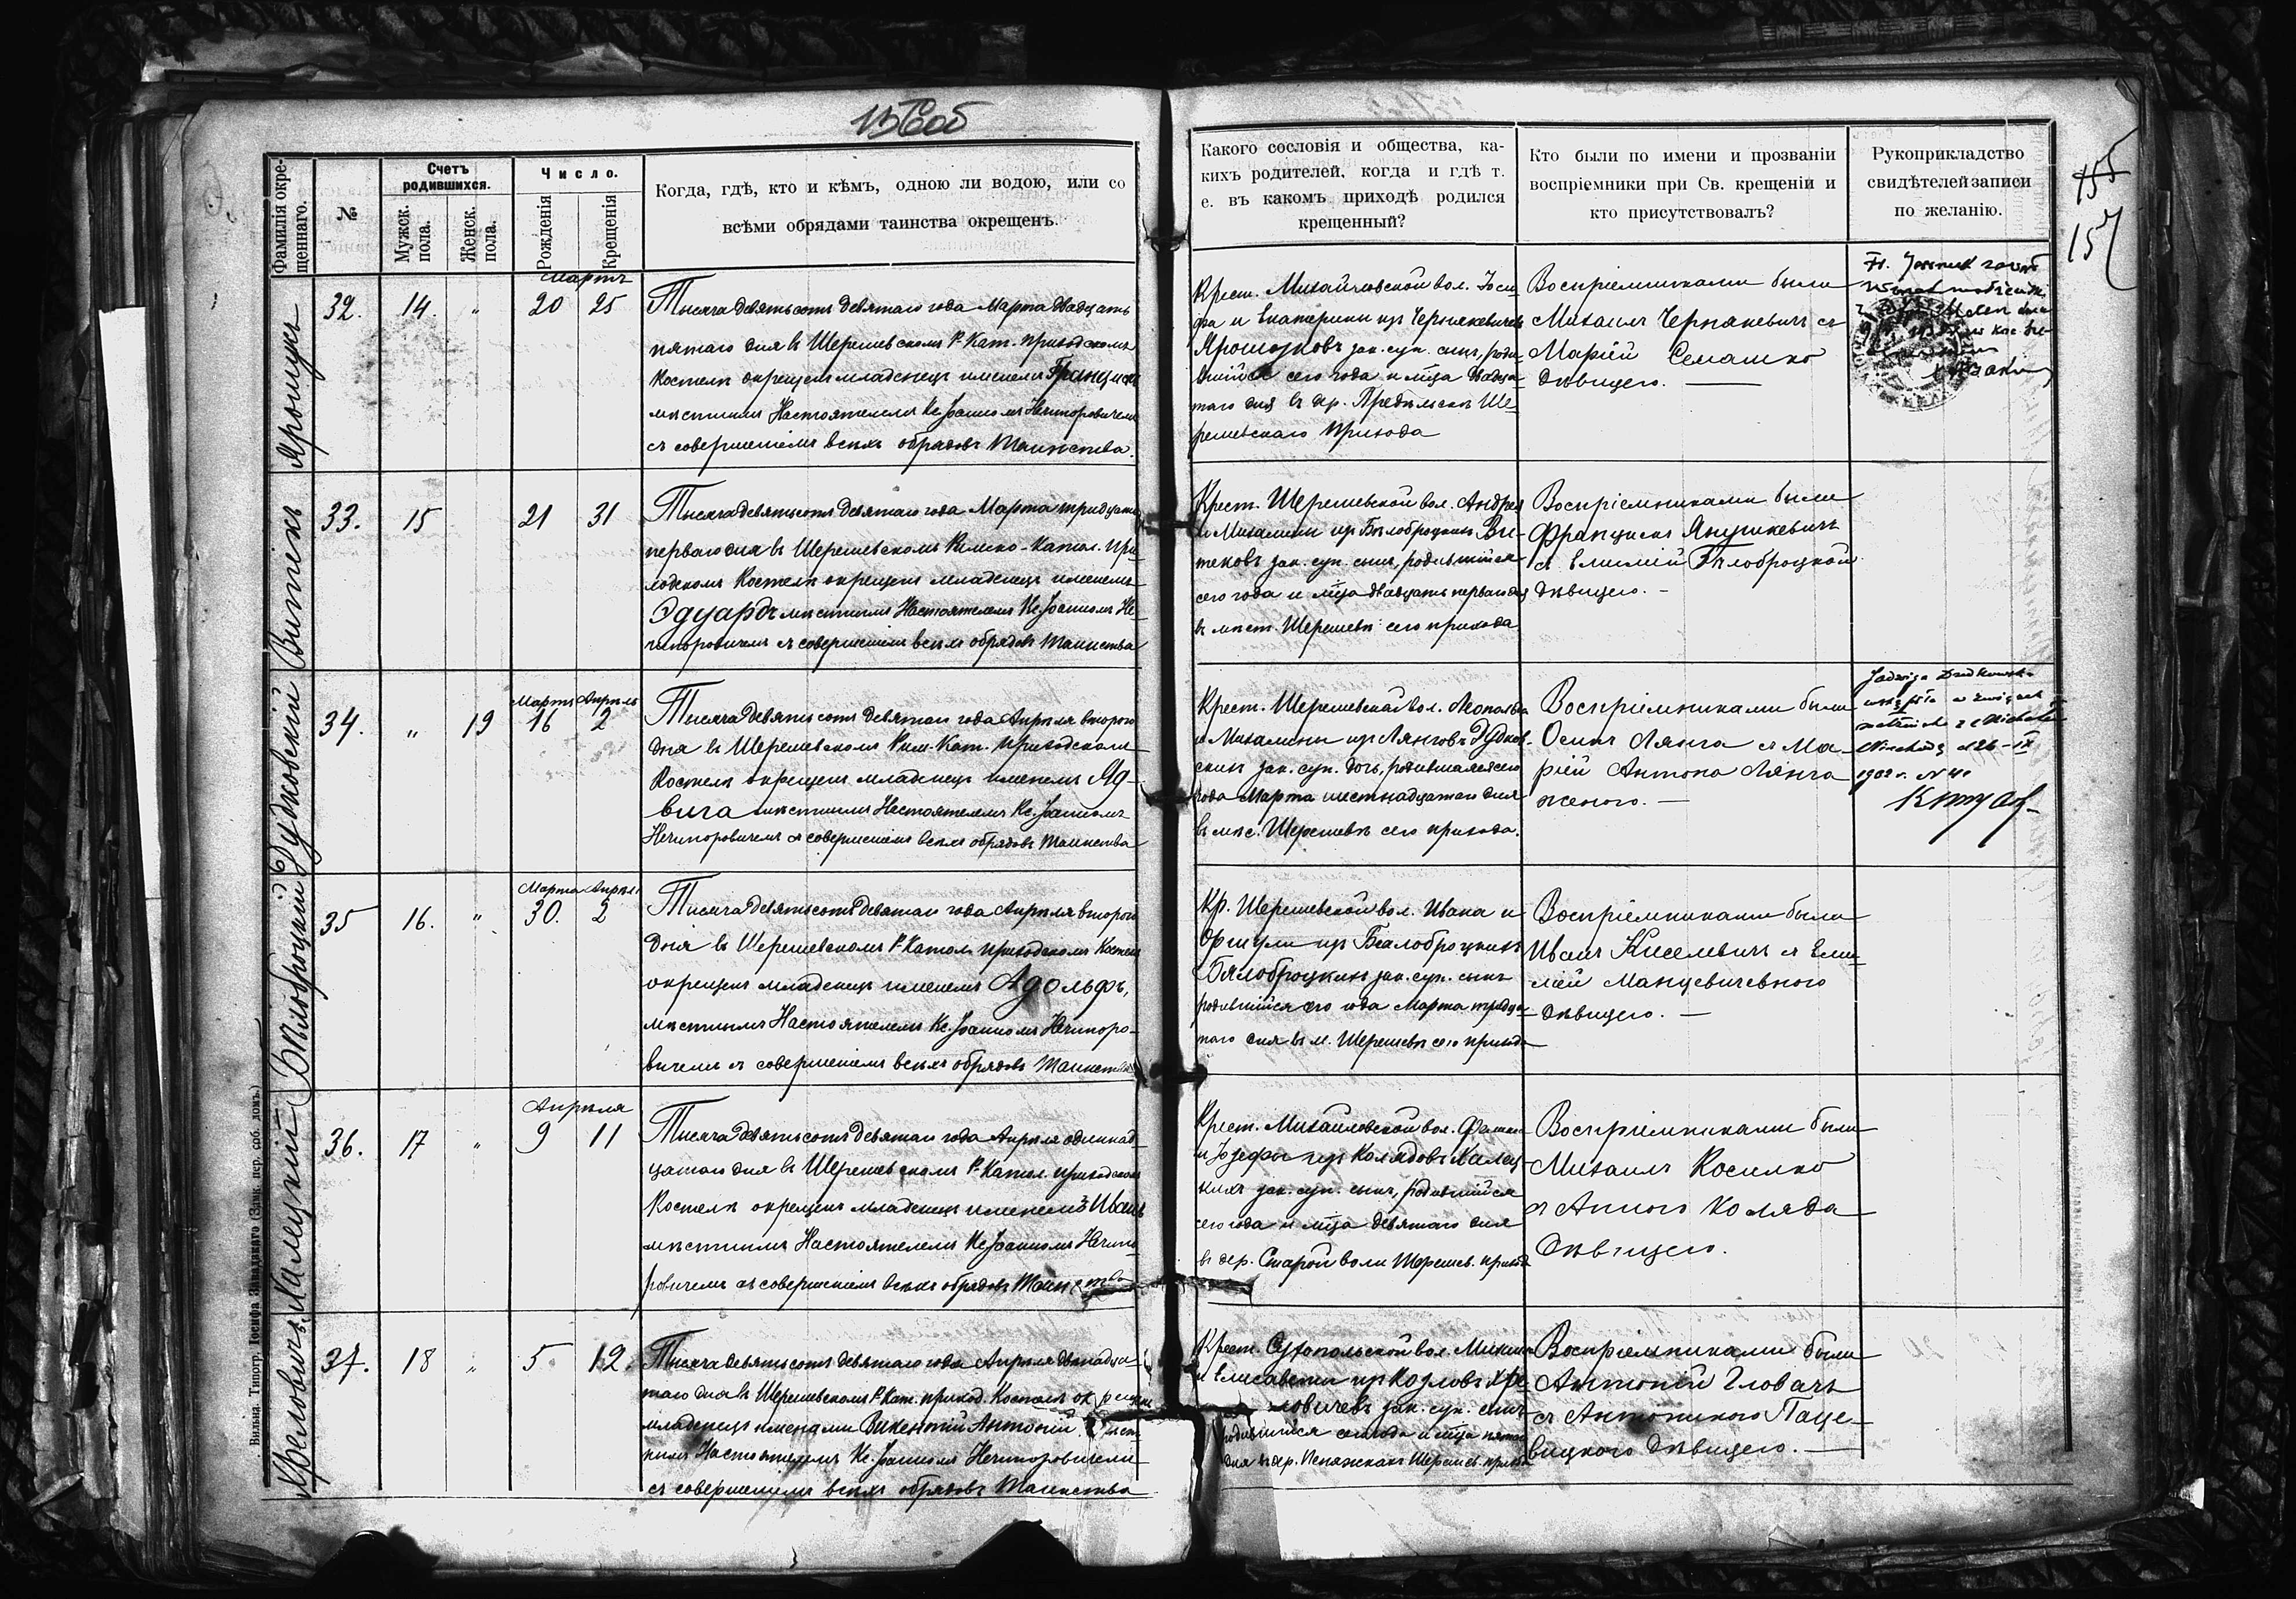 156об
Фамилія окре-
щеннаго.
№
Счетъ
родившихся.
Мужск.
пола.
Женск.
пола.
Число.
Рожденія
Крещенія
Когда, гдѣ, кто и кѣмъ, одною ли водою, или со
всѣми обрядами таинства окрещенъ.
Ярощукъ
32.
14.
"
Мартъ
20
25
Тысяча девятьсотъ девятаго года Марта двадцать
пятаго дня въ Шерешевскомъ Р. Кат. приходскомъ
Костелѣ окрещенъ младенецъ именемъ Францискъ
мѣстнымъ Настоятелемъ Кс. Іоанномъ Нечипоровичемъ
съ совершеніемъ всѣхъ обрядовъ Таинства.
Витекъ
33.
15
21
31
Тысяча девятьсотъ девятаго года Марта тридцать
перваго дня въ Шерешевскомъ Римско-Катол. при-
ходскомъ Костелѣ окрещенъ младенецъ именемъ
Эдуардъ мѣстнымъ Настоятелемъ Кс. Іоанномъ Не-
чипоровичемъ съ совершеніемъ всѣхъ обрядовъ Таинства
Дудковскій
34.
"
19
Мартъ Апрѣль
16
2
Тысяча девятьсотъ девятаго года Апрѣля второго
дня въ Шерешевскомъ Рим. Кат. приходскомъ
Костелѣ окрещенъ младенецъ именемъ Яд-
вига мѣстнымъ Настоятелемъ Кс. Іоанномъ
Нечипоровичемъ съ совершеніемъ всѣхъ обрядовъ Таинства
Бѣлоброцкій
35
16.
"
Марта Апрѣл.
30.
2
Тысяча девятьсотъ девятаго года Апрѣля второго
дня въ Шерешевскомъ Р. Катол. приходскомъ Костелѣ
окрещенъ младенецъ именемъ Адольфъ,
мѣстнымъ Настоятелемъ Кс. Іоанномъ Нечипоро-
вичемъ съ совершеніемъ всѣхъ обрядовъ Таинства
Халецкій
36.
17
"
Апрѣля
9
11
Тысяча девятьсотъ девятаго года Апрѣля одиннад-
цатаго дня въ Шерешевскомъ Р. Катол. приходскомъ
Костелѣ окрещенъ младенецъ именемъ Иванъ
мѣстнымъ Настоятелемъ Кс. Іоанномъ Нечипо-
ровичемъ съ совершеніемъ всѣхъ обрядовъ Таинства
Хреловичъ
37.
18
"
5
12.
Тысяча девятьсотъ девятаго года Апрѣля двѣнадца-
таго дня въ Шерешевскомъ Р. Кат. приход. Костелѣ окрещенъ
младенецъ именами Викентій Антоній мѣст-
нымъ Настоятелемъ Кс. Іоанномъ Нечипоровичемъ
съ совершеніемъ всѣхъ обрядовъ Таинства
Вильна. Типогр. Іосифа Завадзкаго (Замк. пер. соб. домъ.)
Какого сословія и общества, ка-
кихъ родителей, когда и гдѣ т.
е. въ какомъ приходѣ родился
крещенный?
Кто были по имени и прозваніи
воспріемники при Св. крещеніи и
кто присутствовалъ?
Рукоприкладство
свидѣтелей записи
по желанію.
155
157
Крест. Михайловской вол. Іоси-
фа и Екатерины изъ Чернякевичъ
Ярощуковъ зак. суп. сынъ, роди-
вшійся сего года и мѣца двадца-
таго дня въ дер. Ше-
решевскаго прихода
Воспріемниками были
Михаилъ Чернякевичъ съ
Маріей Семашко
дѣвицею.
Крест. Шерешевской вол. Андрея
и Михалины изъ Бѣлоброцкихъ Ви-
тековъ зак. суп. сынъ, родившійся
сего года и мѣца двадцать перваго дня
въ мѣст. Шерешевѣ сего прихода
Воспріемниками были
Францискъ Янушкевичъ
съ Емиліей Бѣлоброцкой
дѣвицею.
Крест. Шерешевской вол. Леопольда
и Михалины изъ Ланговъ Дудков-
скихъ зак. суп. дочь, родившаяся сего
года Марта шестнадцатаго дня
въ мѣс. Шерешевѣ сего прихода.
Воспріемниками были
Осипъ Лянга съ Ма-
ріей Антона Лянга
женою.
Jadwiga Dudkowska
1902 r. N 4
Кр. Шерешевской вол. Ивана и
Оршули изъ Бѣлоброцкихъ
Бѣлоброцкихъ зак. суп. сынъ
родившійся сего года Марта тридца-
таго дня въ м. Шерешевѣ сего прихода
Воспріемниками были
Иванъ Киселевичъ съ Еми-
ліей Манцевичевною
дѣвицею.
Крест. Михайловской вол.
и Іозефы изъ Колядовъ Халец-
кихъ зак. суп. сынъ, родившійся
сего года и мѣца девятаго дня
въ дер. Старой воли Шерешев. прихода
Воспріемниками были
Михаилъ Косилко
съ Анною Коляда
дѣвицею.
Крест. Сухопольской вол.
и Елисаветы изъ Козловъ Хре-
ловичевъ зак. суп. сынъ
родившійся сего года и мѣца пятаго
дня въ дер. Шерешев. прихода
Воспріемниками были
Антоній Головачъ
съ Антониною Паце-
вицкою дѣвицею.